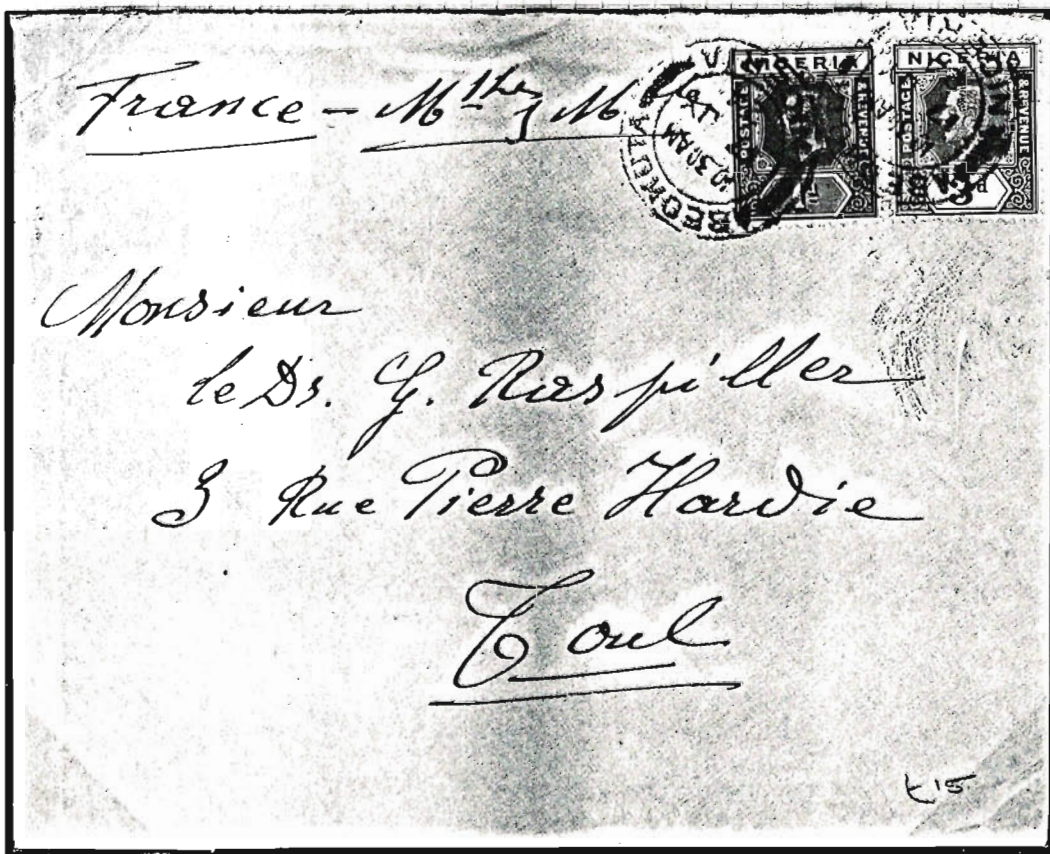 France - Mthe & Mlle
NIGERIA NIGERIA
POSTAGE & REVENUE POSTAGE & REVENUE
3d
ABEOKUTA
10.30 AM
Monsieur
le Dr. G. Raspiller
3 Rue Pierre Hardie
Toul
£15